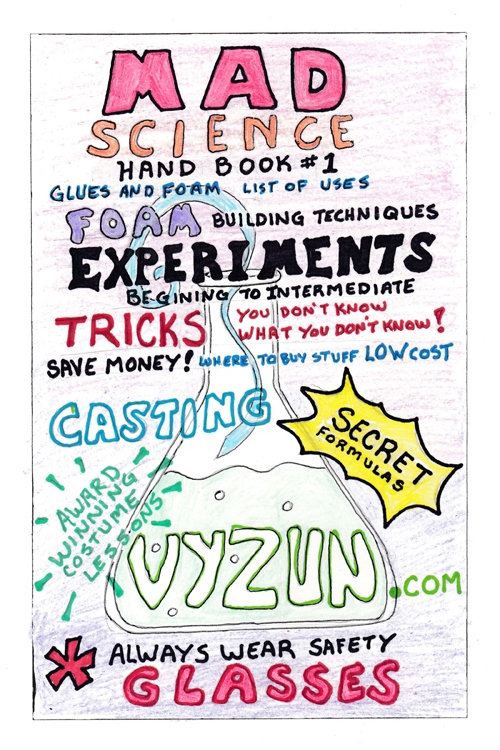 MAD
SCIENCE
HAND BOOK #1
GLUES AND FOAM LIST OF USES
FOAM BUILDING TECHNIQUES
EXPERIMENTS
BEGINING TO INTERMEDIATE
TRICKS YOU DON'T KNOW
WHAT YOU DON'T KNOW!
SAVE MONEY! WHERE TO BUY STUFF LOW COST
CASTING
SECRET
FORMULAS
AWARD
WINNING
COSTUME
LESSONS
VYZUN.COM
* ALWAYS WEAR SAFETY
GLASSES